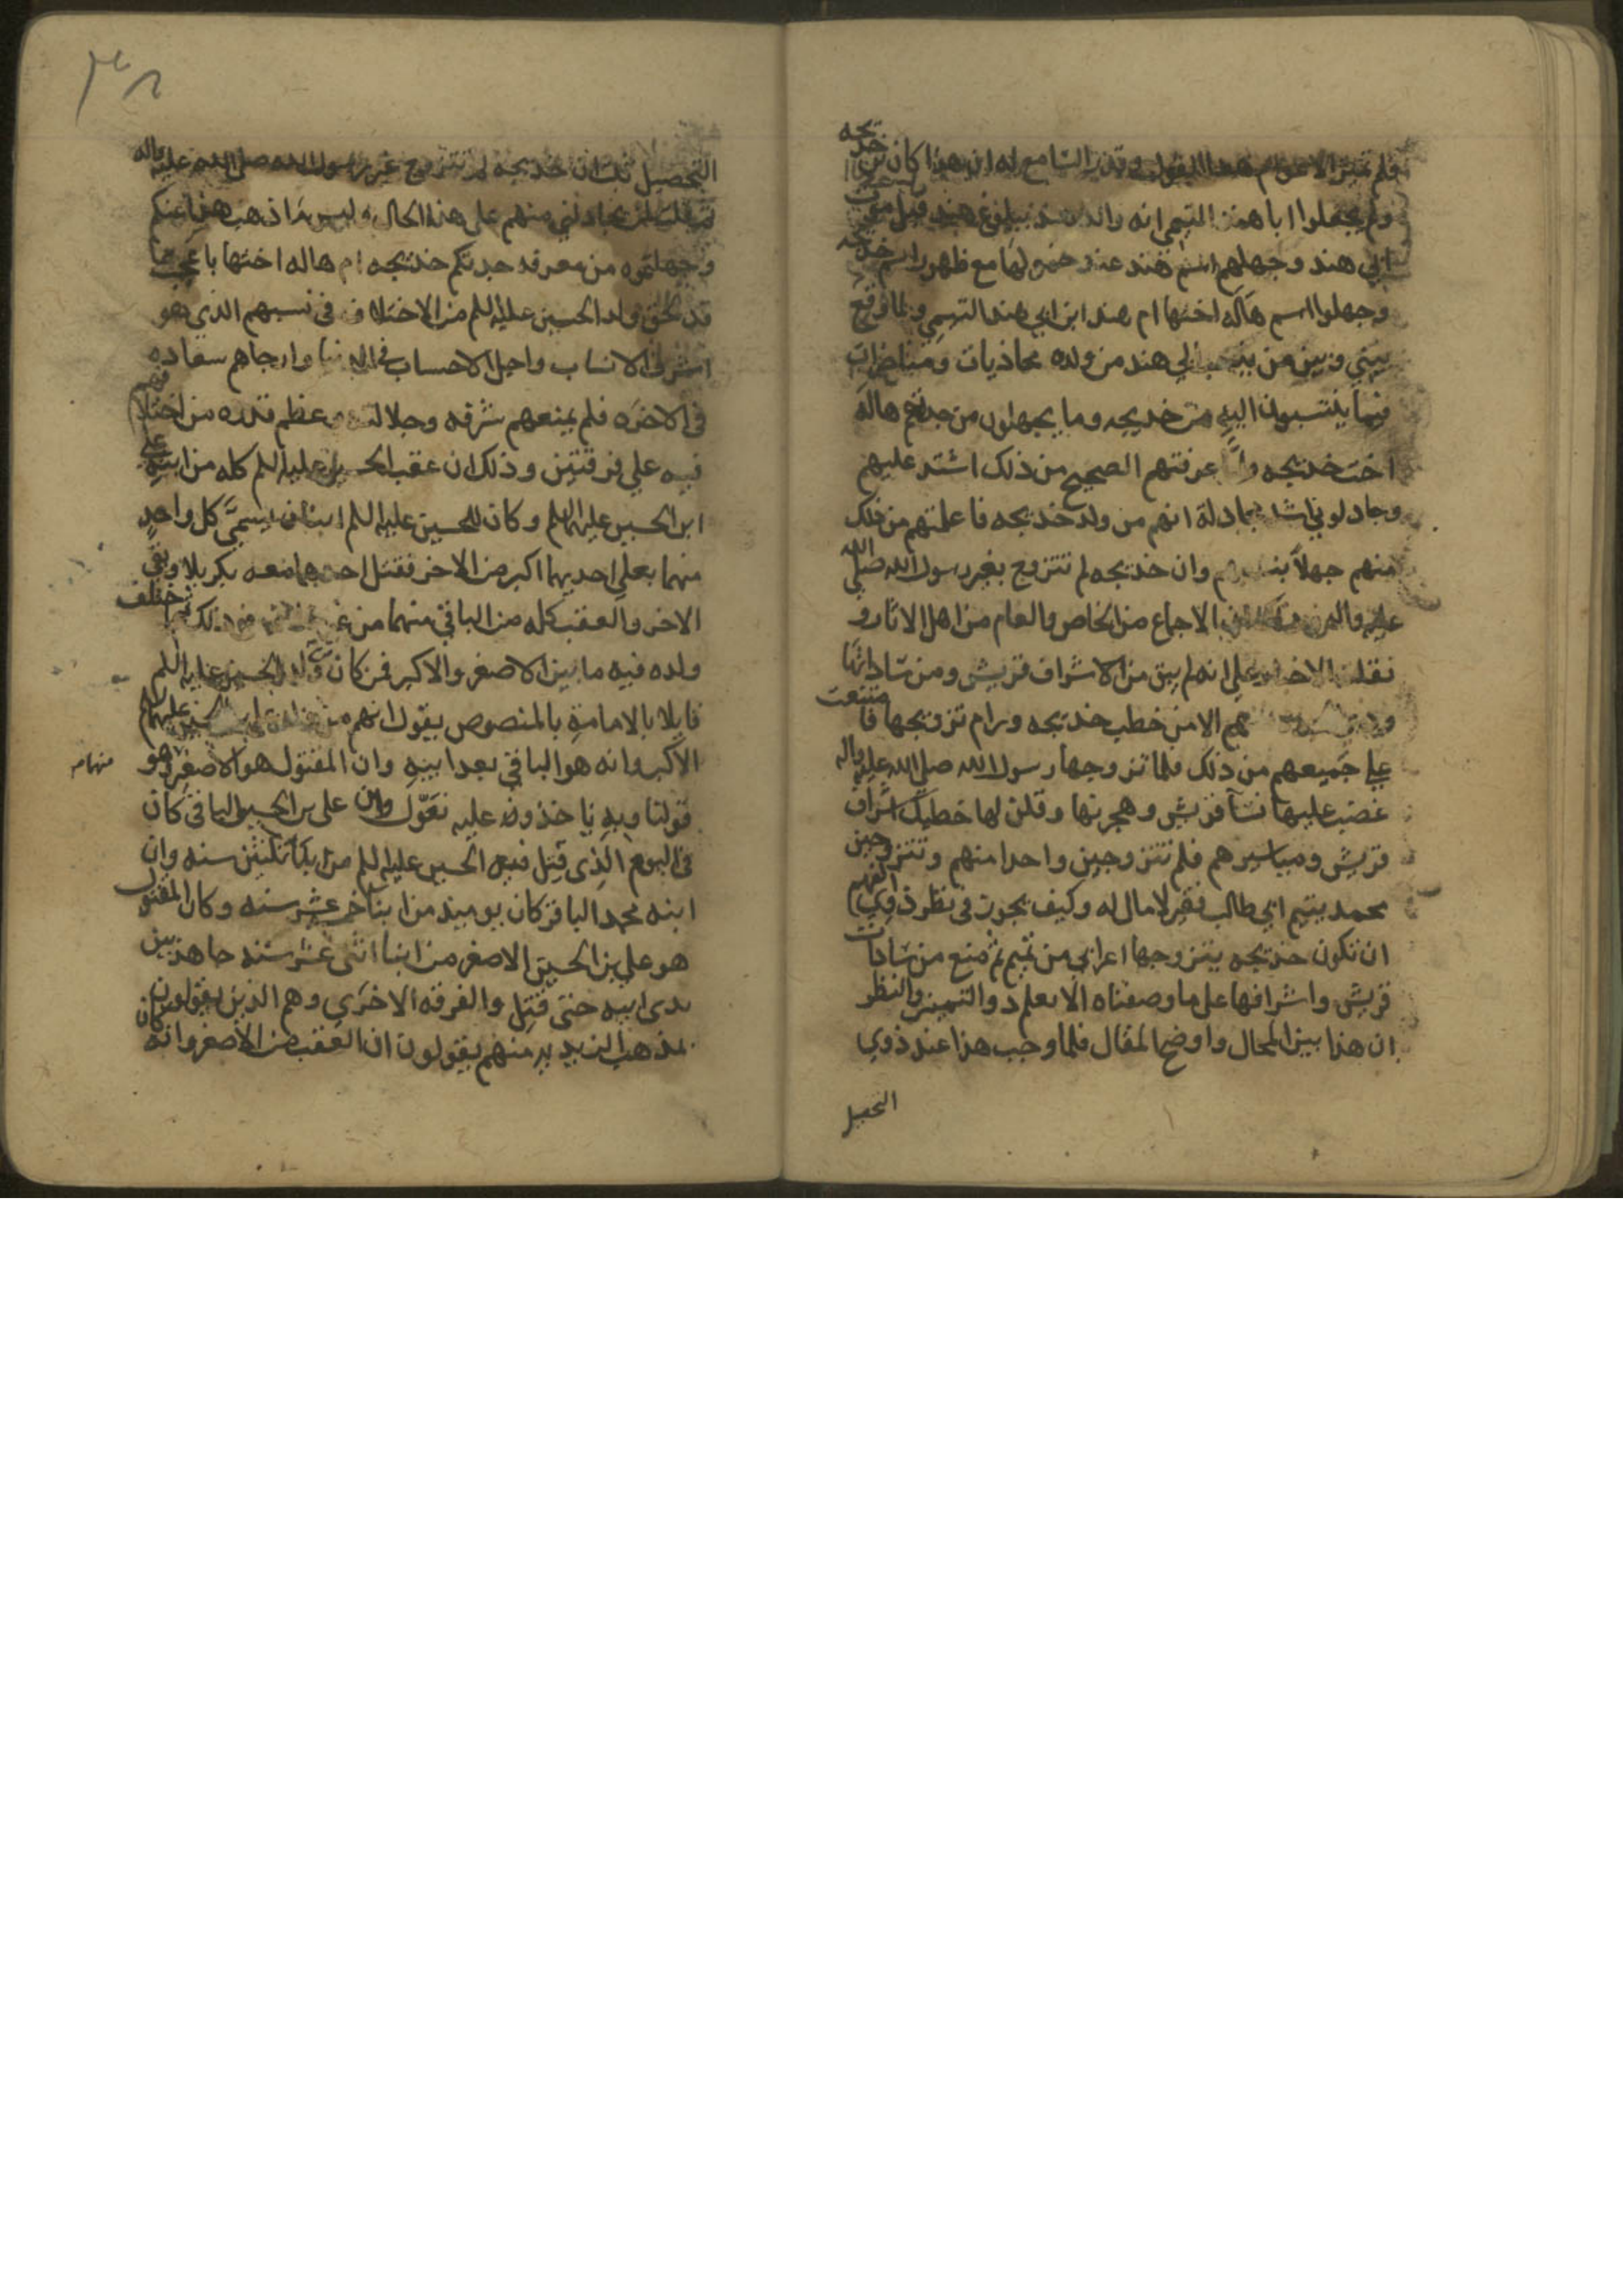 فلم تميز الاعوام هذا القول وقدر السامع له ان هذا كان من خديجه
ولم يجعلوا ابا هند التيمي انه والد هند
ابي هند وجهلهم اسم هند عند خمولها مع ظهور اسم خديجه
وجهلوا اسم هاله اختها ام هند ابن ابي هند التميمي ولما وقع
بيني وبين من ينتسب الي هند من ولده محاذيات ومناظرات
فيما ينتسبون اليه من خديجه وما يجهلون من جدتهم هاله
اخت خديجه ولما عرفتهم الصحيح من ذلك اشتد عليهم
وجادلوني اشد مجادلة انهم من ولد خديجه فاعلمتهم من ذلك
منهم جهلا بنسبهم وان خديجه لم تتزوج بغير رسول الله صلي الله
عليه واله الاجماع من الخاص والعام من اهل الاثار و
نقلت الاخبار علي انه لم يبق من الاشراف قريش ومن ساداتها
هم الا من خطب خديجه ورام تزويجها فامتنعت
علي جميعهم من ذلك فلما تزوجها رسول الله صلي الله عليه واله
غضب عليها نسآ قريش وهجرنها وقلن لها خطبك اشراف
قريش ومياسيرهم فلم تتزوجين واحدا منهم وتتزوجين
محمد يتيم ابي طالب فقير لا مال له وكيف يجوز في نظر ذوي الفهم
ان تكون خديجه يتزوجها اعرابي من تميم ثم تمنع من سادات
قريش واشرافها علي ما وصفناه الا يعلم ذو التمييز والنظر
ان هذا بين المحال واوضح المقال فلما وجب هذا عند ذوي
التحصيل
التحصيل ثبت ان خديجه لم تتزوج غير رسول الله صلي الله عليه واله
ثم قلت لمن يجادلني منهم علي هذه الحال وليس ما ذهب هذا عنكم
وجهلتموه من معرفه جدتكم خديجه ام هاله اختها باعجب مما
قد لحق ولد الحسين عليه السلم من الاختلاف في نسبهم الذي هو
اشرف الانساب واجل الاحساب في الدنيا وارجاهم سعاده
في الاخره فلم يمنعهم شرفه وجلالته وعظم قدره من اختلافهم
فيه علي فرقتين وذلك ان عقب الحسين عليه السلم كله من ابنه علي
ابن الحسين عليهما السلم وكان للحسين عليه السلم ابنان يسمي كل واحد
منهما بعلي احديهما اكبر من الاخر فقتل احدهما معه بكربلا وبقي
الاخر والعقب كله من الباقي منهما من غير ذلك ثم اختلف
ولده فيه ما بين الاصغر والاكبر فمن كان من ولد الحسين عليه السلم
قايلا بالامامة بالمنصوص يقول انهم من ولد علي بن الحسين عليهما السلم
الاكبر وانه هو الباقي بعد ابيه وان المقتول هو الاصغر منهما وهو
قولنا وبه ناخذ وعليه نعول وان علي بن الحسين الباقي كان
في اليوم الذي قتل فيه الحسين عليه السلم من ابنآ ثلثين سنه وان
ابنه محمد الباقر كان يوميذ من ابنا خمس عشر سنه وكان المقتول
هو علي بن الحسين الاصغر من ابنا اثني عشر سنه جاهد بين
يدي ابيه حتي قتل والفرقه الاخري وهم الذين يقولون
بمذهب الزيديه منهم يقولون ان العقب من الاصغر وانه كان